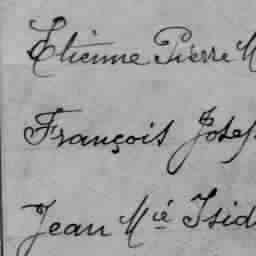 Etienne Pierre M
François Josep
Jean Mie Isid